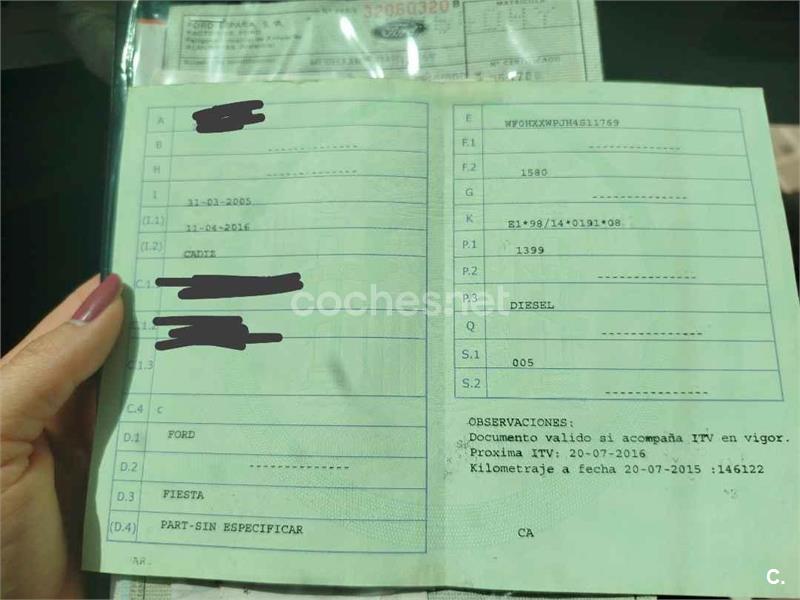 FORD ESPAÑA, S. A.
32060320
Ford
Nº CERTIFICADO
A
B
H
I 31-03-2005
(I.1) 11-04-2016
(I.2) CADIZ
C.1.
C.1.3
C.4 c
D.1 FORD
D.2
D.3 FIESTA
(D.4) PART-SIN ESPECIFICAR
AR.
E WF0HXXWPJH4S11769
F.1
F.2 1580
G
K E1*98/14*0191*08
P.1 1399
P.2
P.3 DIESEL
Q
S.1 005
S.2
OBSERVACIONES:
Documento valido si acompaña ITV en vigor.
Proxima ITV: 20-07-2016
Kilometraje a fecha 20-07-2015 :146122
CA
coches.net
C.